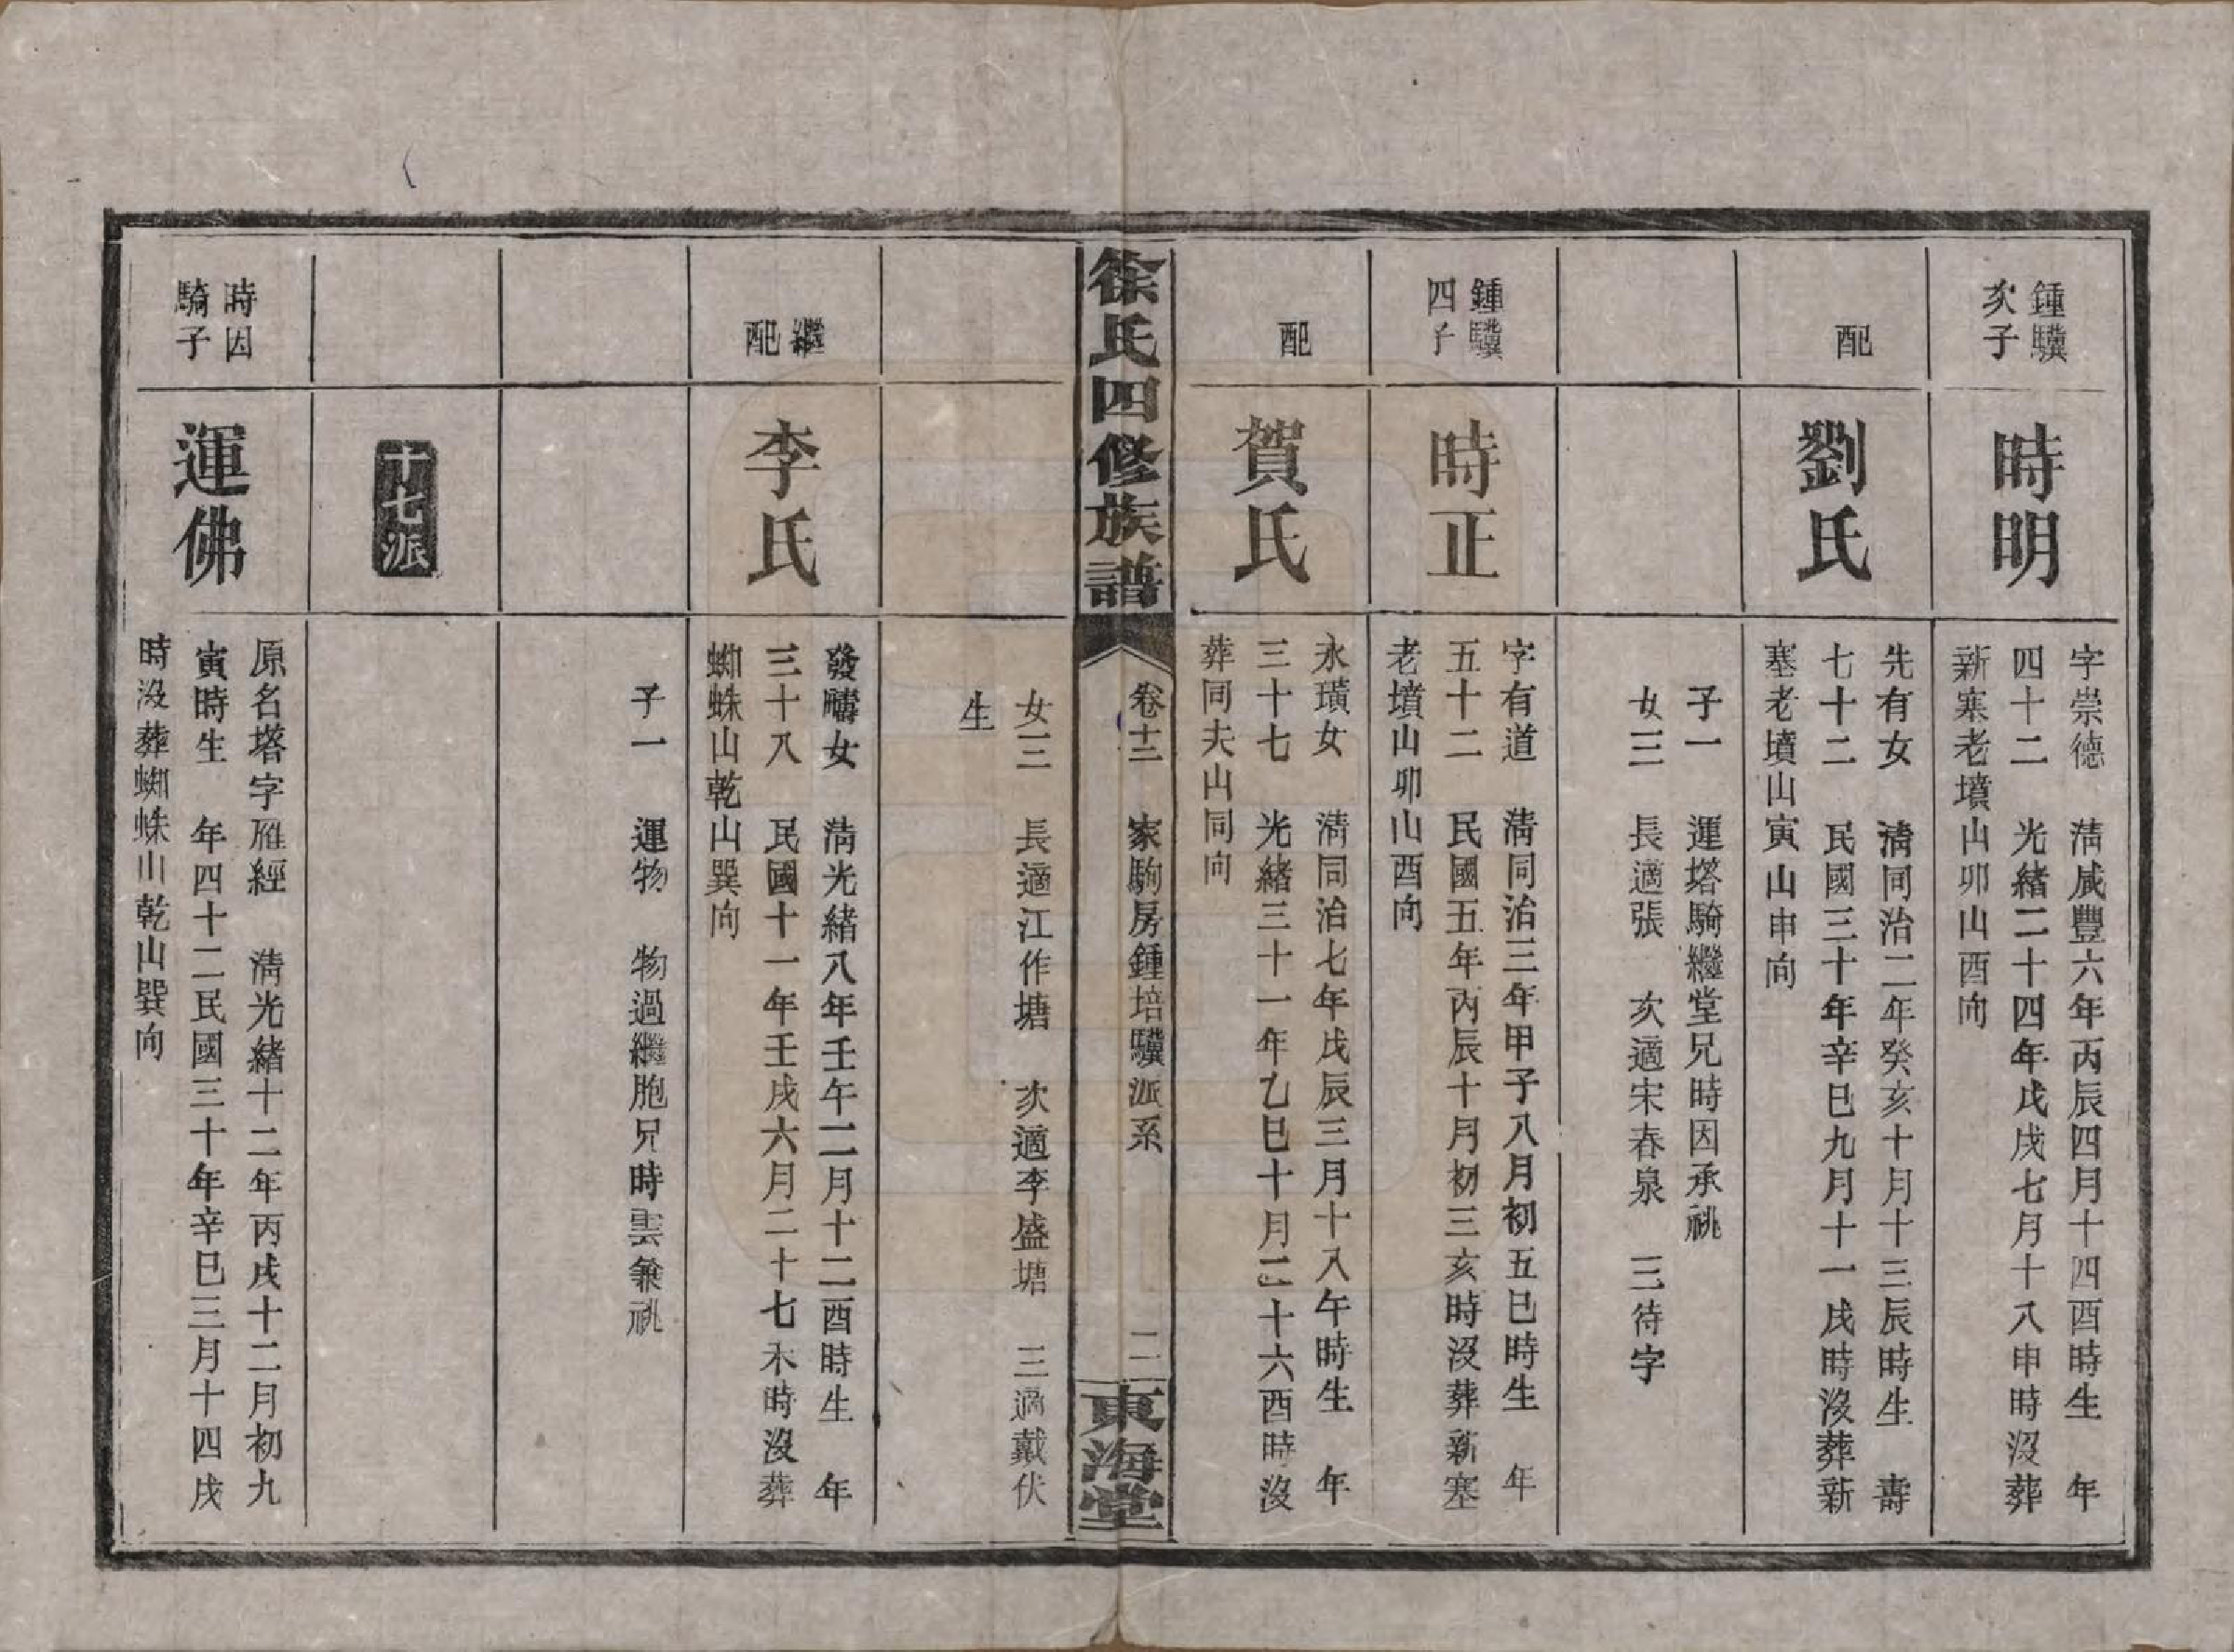 鍾驥
次子
時明
字崇德　清咸豐六年丙辰四月十四酉時生　年
四十二　光緒二十四年戊戌七月十八申時沒葬
新寨老墳山卯山酉向
配
劉氏
先有女　清同治二年癸亥十月十三辰時生　壽
七十二　民國三十年辛巳九月十一戌時沒葬新
塞老墳山寅山申向
子一　運塔騎繼堂兄時因承祧
女三　長適張　次適宋春泉　三待字
鍾驥
四子
時正
字有道　清同治三年甲子八月初五巳時生　年
五十二　民國五年丙辰十月初三亥時沒葬新塞
老墳山卯山酉向
配
賀氏
永璜女　清同治七年戊辰三月十八午時生　年
三十七　光緒三十一年乙巳十月二十六酉時沒
葬同夫山同向
徐氏四修族譜
卷十二　家駒房鍾培驥派系　二
東海堂
女三　長適江作塘　次適李盛塘　三適戴伏
生
繼
配
李氏
發疇女　清光緒八年壬午二月十二酉時生　年
三十八　民國十一年壬戌六月二十七未時沒葬
蜘蛛山乾山巽向
子一　運物　物過繼胞兄時雲兼祧
十七派
時因
騎子
運佛
原名塔字雁經　清光緒十二年丙戌十二月初九
寅時生　年四十二民國三十年辛巳三月十四戌
時沒葬蜘蛛山乾山巽向